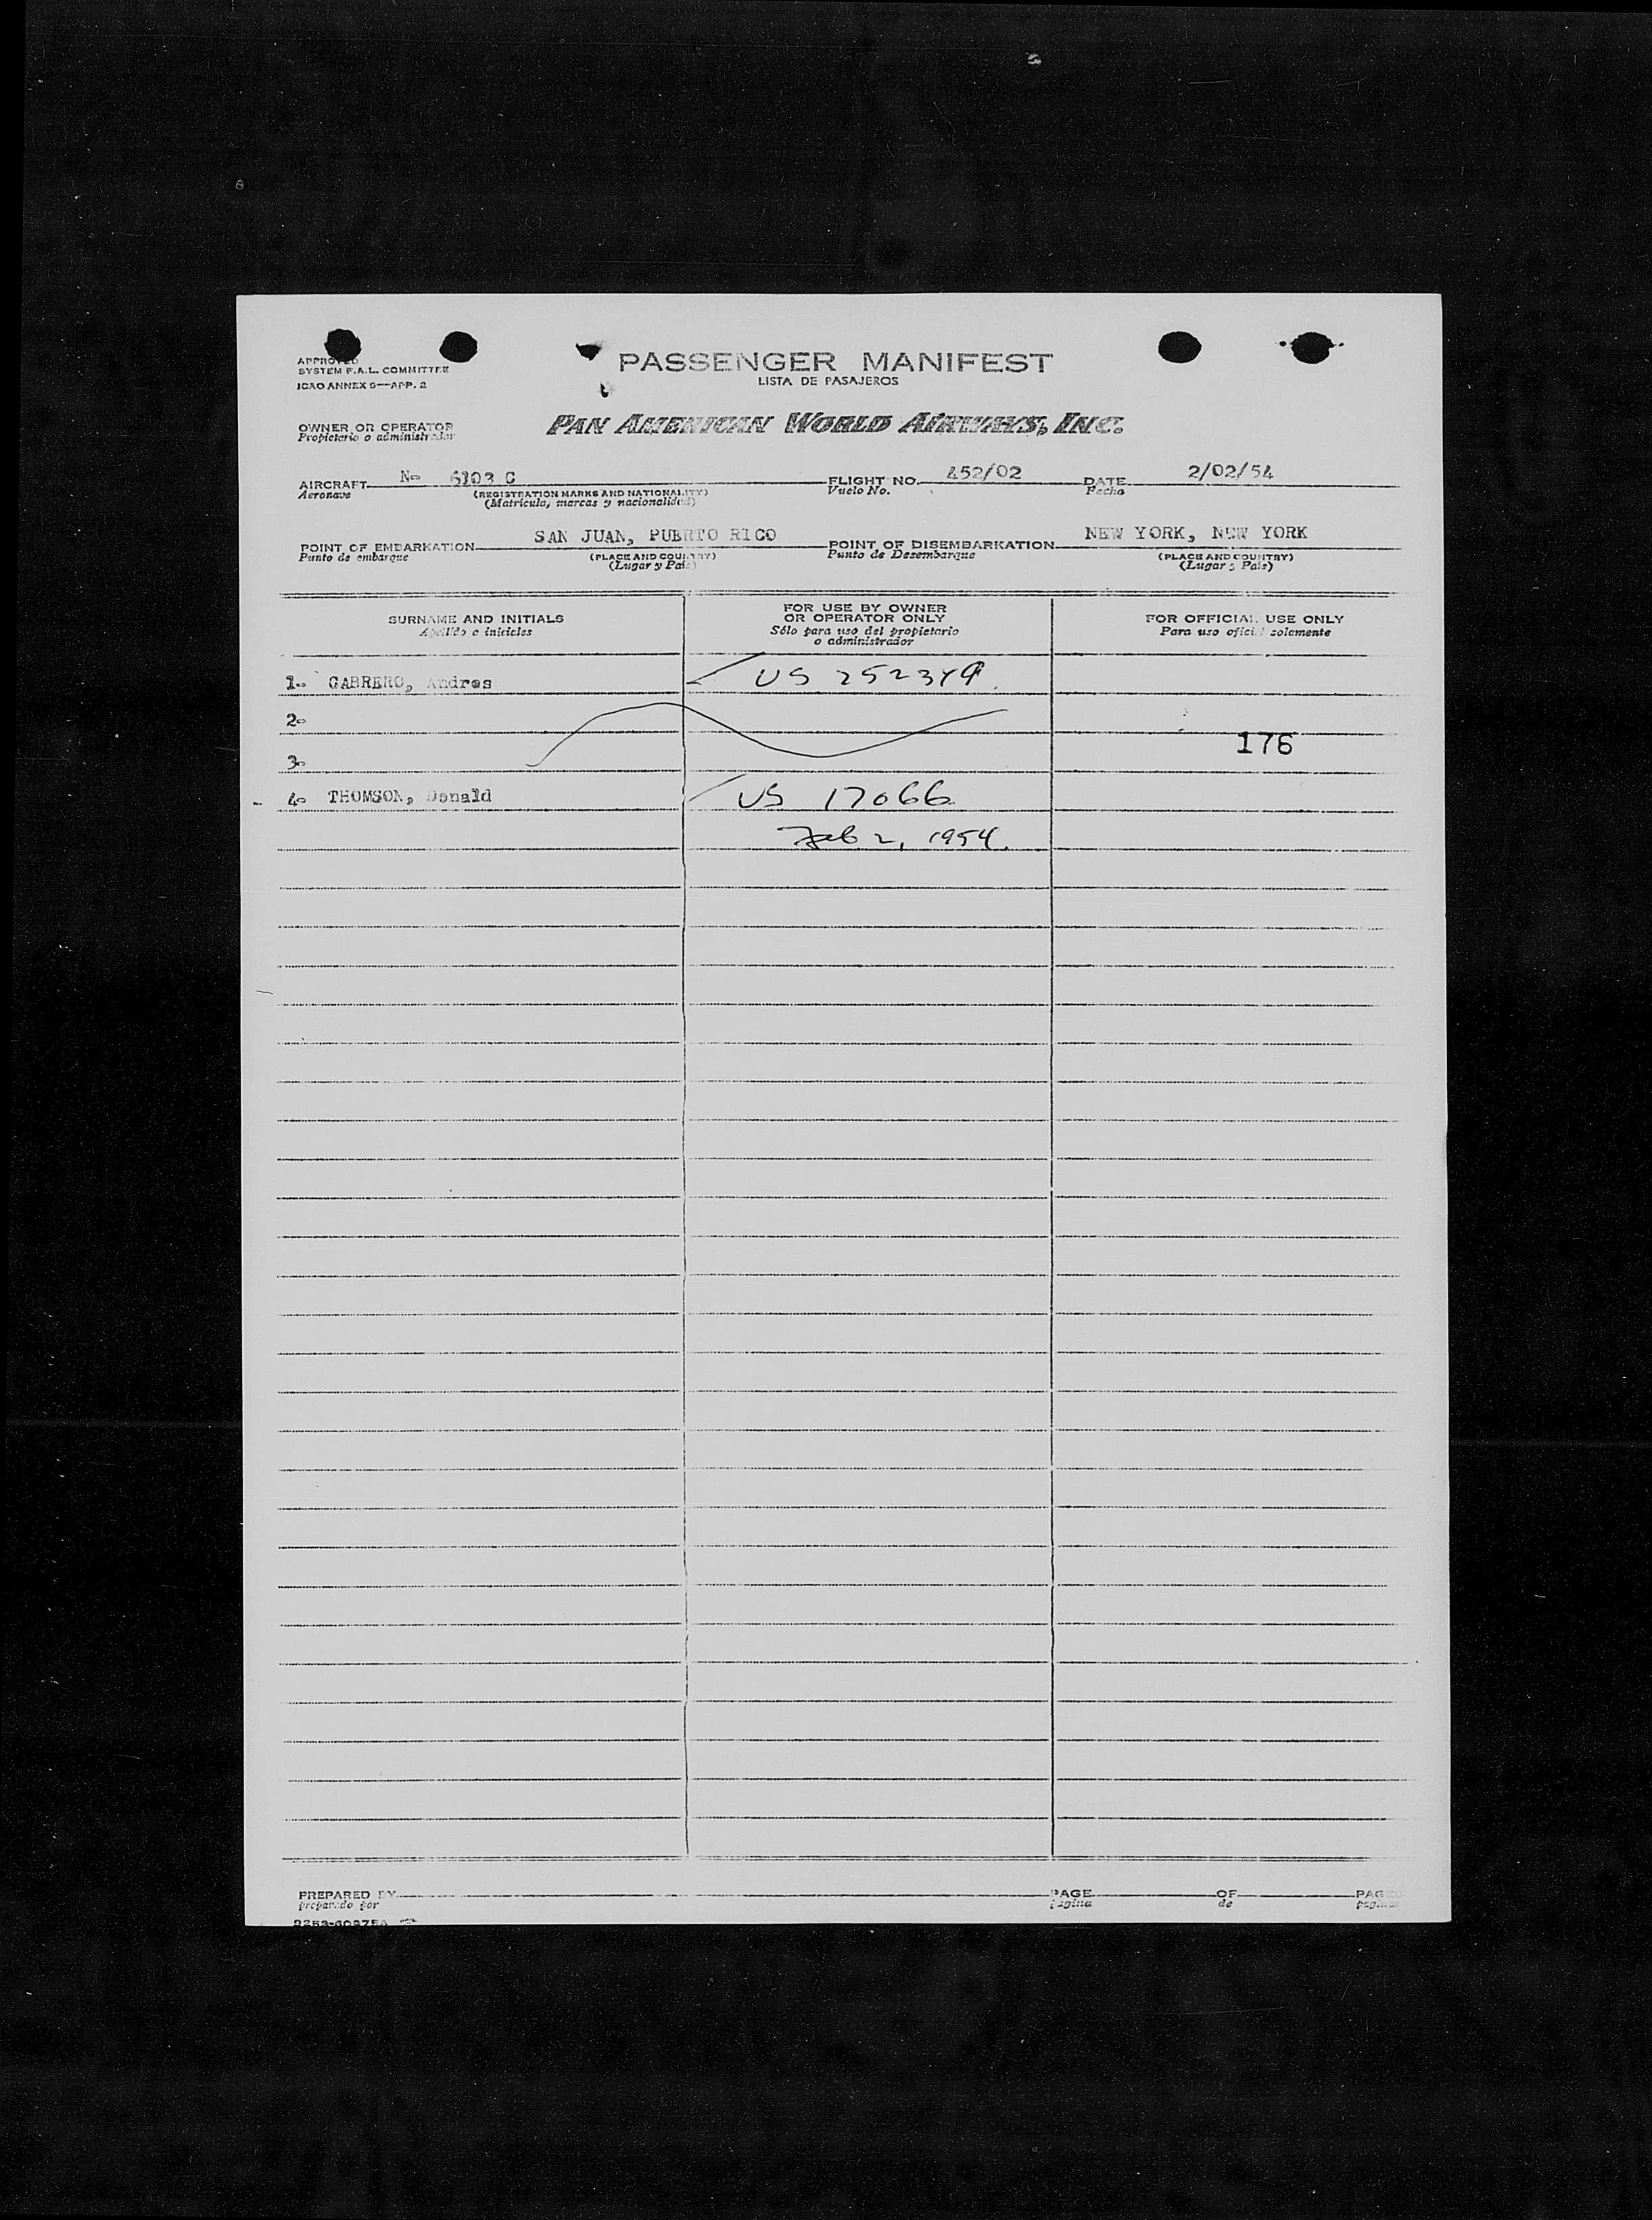 APPROVED
SYSTEM F.A.L. COMMITTEE
ICAO ANNEX 9—APP. 2
PASSENGER MANIFEST
LISTA DE PASAJEROS
OWNER OR OPERATOR
Propietario o administrador
PAN AMERICAN WORLD AIRWAYS, INC.
AIRCRAFT N- 6103 C
Aeronave
(REGISTRATION MARKS AND NATIONALITY)
(Matricula, marcas y nacionalidad)
FLIGHT NO. 452/02
Vuelo No.
DATE 2/02/54
Fecha
POINT OF EMBARKATION SAN JUAN, PUERTO RICO
Punto de embarque
(PLACE AND COUNTRY)
(Lugar y País)
POINT OF DISEMBARKATION NEW YORK, NEW YORK
Punto de Desembarque
(PLACE AND COUNTRY)
(Lugar y País)
SURNAME AND INITIALS
Apellido e iniciales
FOR USE BY OWNER
OR OPERATOR ONLY
Sólo para uso del propietario
o administrador
FOR OFFICIAL USE ONLY
Para uso oficial solamente
1- CABRERO, Andres US 252349
2-
176
3-
4- THOMSON, Donald US 17066
Feb 2, 1954.
PREPARED BY
preparado por
PAGE OF PAGES
página de páginas